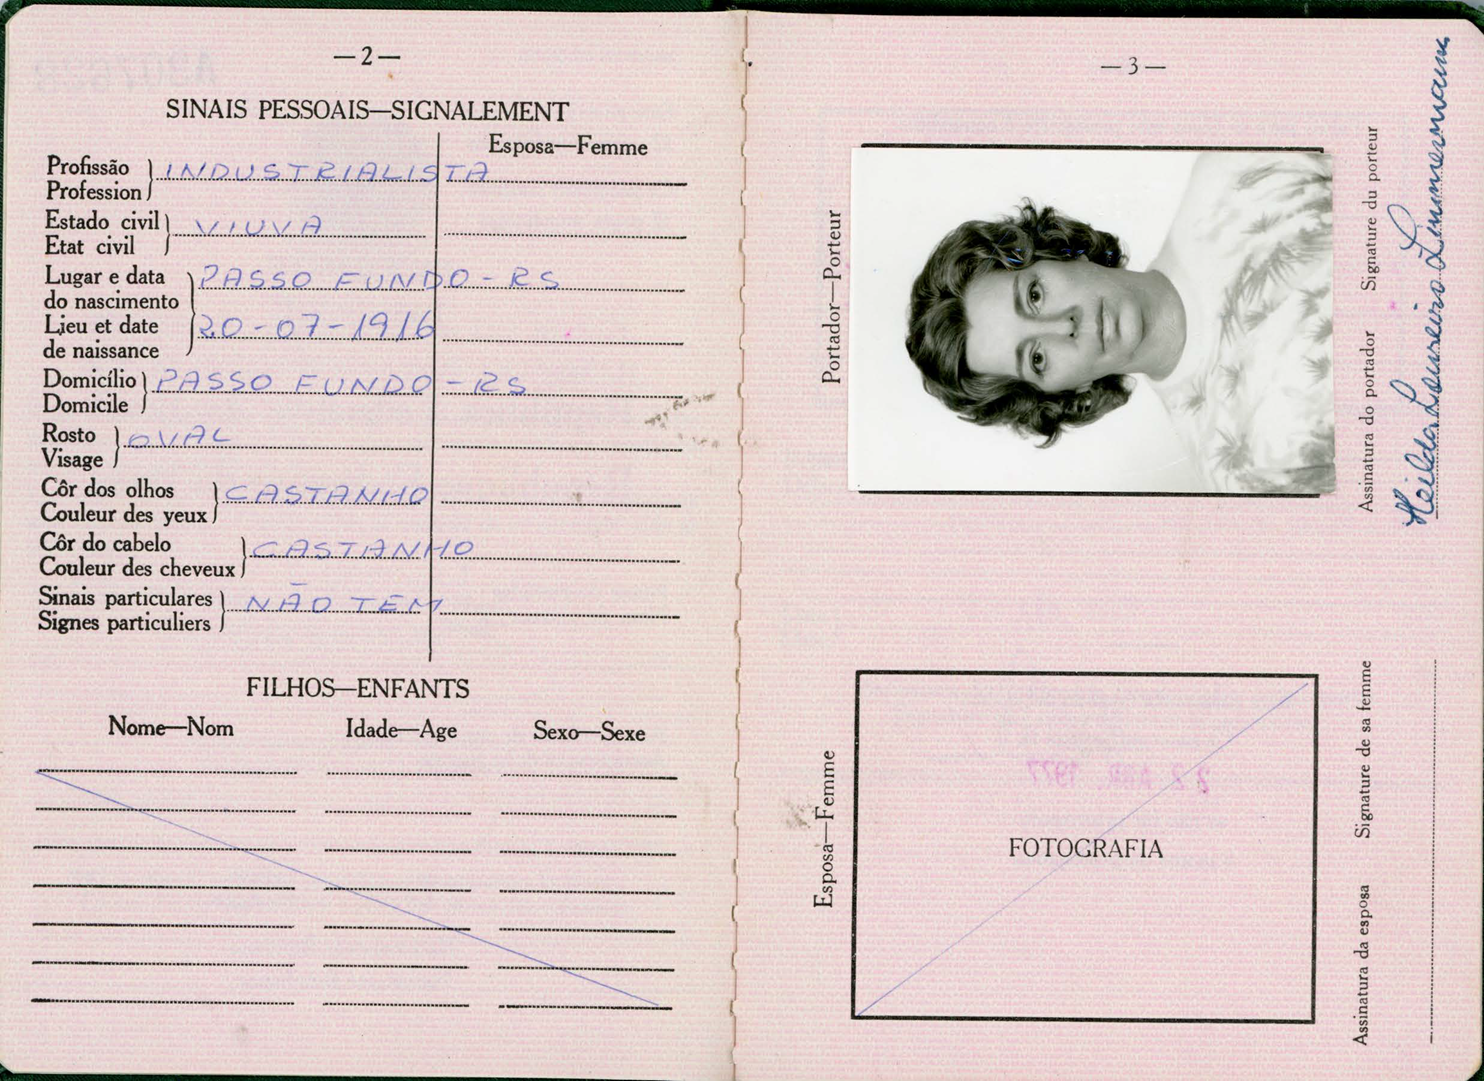 —2—
SINAIS PESSOAIS—SIGNALEMENT
Esposa—Femme
Profissão
Profession
INDUSTRIALISTA
Estado civil
Etat civil
VIUVA
Lugar e data
do nascimento
Lieu et date
de naissance
PASSO FUNDO - RS
20-07-1916
Domicílio
Domicile
PASSO FUNDO - RS
Rosto
Visage
OVAL
Côr dos olhos
Couleur des yeux
CASTANHO
Côr do cabelo
Couleur des cheveux
CASTANHO
Sinais particulares
Signes particuliers
NÃO TEM
FILHOS—ENFANTS
Nome—Nom Idade—Age Sexo—Sexe
—3—
Portador—Porteur
Assinatura do portador Signature du porteur
Loureiro
Esposa—Femme
22 ABR. 1977
FOTOGRAFIA
Assinatura da esposa Signature de sa femme